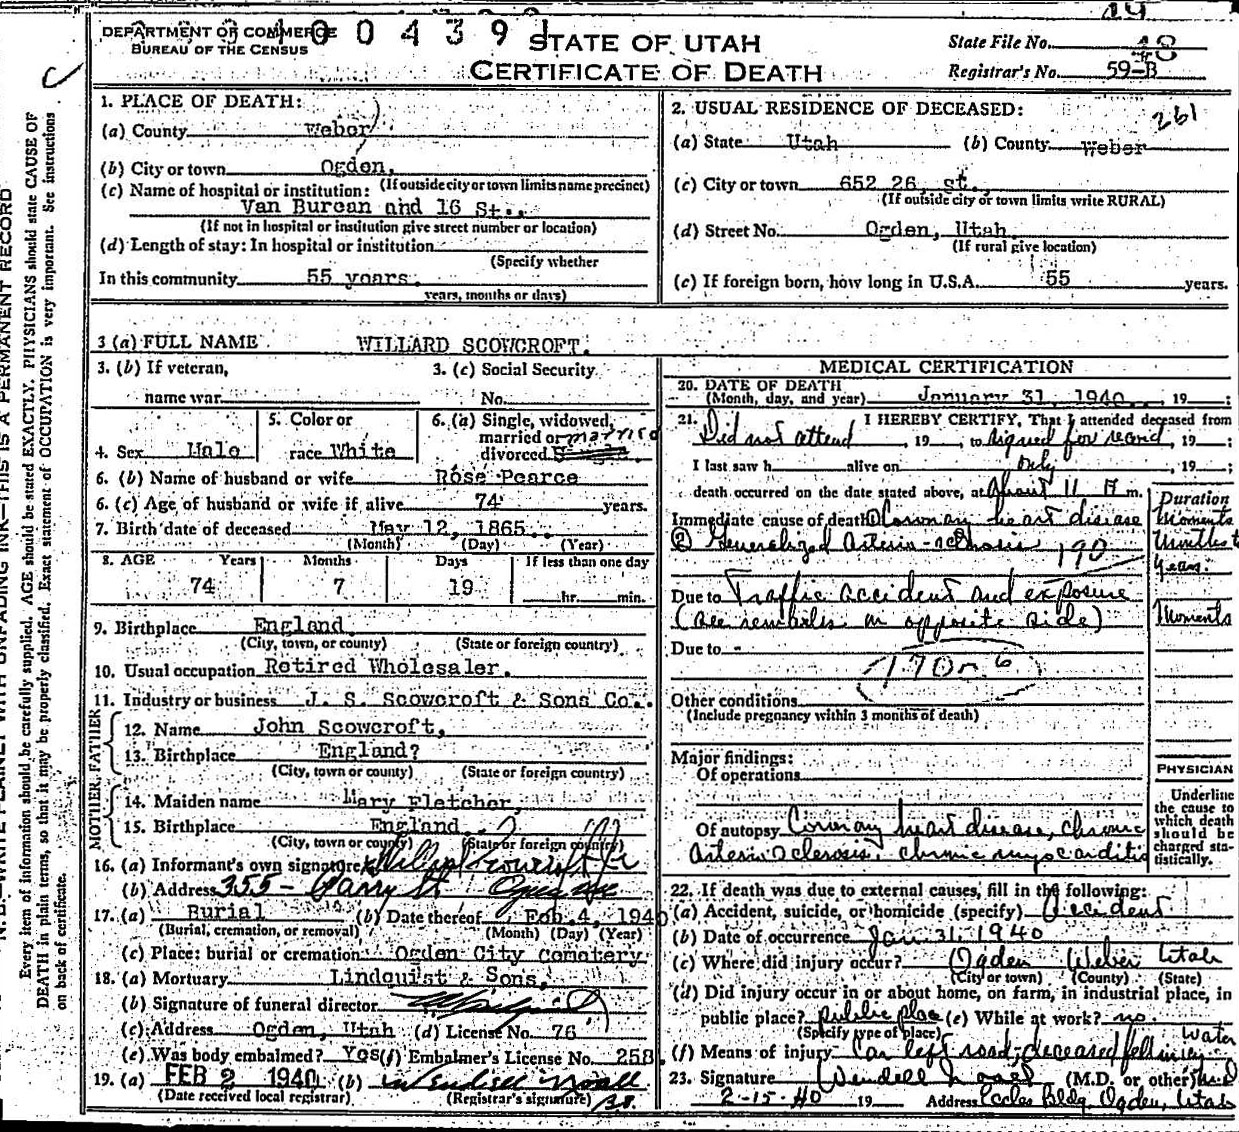 DEPARTMENT OF COMMERCE
BUREAU OF THE CENSUS
1 0 0 4 3 9 1
STATE OF UTAH
CERTIFICATE OF DEATH
State File No. 48
Registrar's No. 59-B
1. PLACE OF DEATH:
(a) County Weber
(b) City or town Ogden,
(If outside city or town limits name precinct)
(c) Name of hospital or institution:
Van Buren and 16 St.,
(If not in hospital or institution give street number or location)
(d) Length of stay: In hospital or institution
(Specify whether
In this community 55 years.
years, months or days)
2. USUAL RESIDENCE OF DECEASED:
261
(a) State Utah (b) County Weber
(c) City or town 652 26, st.,
(If outside city or town limits write RURAL)
(d) Street No. Ogden, Utah
(If rural give location)
(e) If foreign born, how long in U.S.A. 55 years.
3 (a) FULL NAME WILLARD SCOWCROFT.
3. (b) If veteran,
name war
3. (c) Social Security
No.
4. Sex Male
5. Color or
race White
6. (a) Single, widowed,
married or married
divorced
6. (b) Name of husband or wife Rose Pearce
6. (c) Age of husband or wife if alive 74 years.
7. Birth date of deceased May 12, 1865.
(Month) (Day) (Year)
8. AGE Years Months Days If less than one day
74 7 19 hr. min.
9. Birthplace England
(City, town, or county) (State or foreign country)
10. Usual occupation Retired Wholesaler.
11. Industry or business J. S. Scowcroft & Sons Co.
FATHER
12. Name John Scowcroft,
13. Birthplace England?
(City, town or county) (State or foreign country)
MOTHER
14. Maiden name Mary Fletcher,
15. Birthplace England ?
(City, town or county) (State or foreign country)
16. (a) Informant's own signature Willard Scowcroft Jr
(b) Address 355 - St Ogden
17. (a) Burial (b) Date thereof Feb. 4, 1940
(Burial, cremation, or removal) (Month) (Day) (Year)
(c) Place: burial or cremation Ogden City Cemetery
18. (a) Mortuary Lindquist & Sons,
(b) Signature of funeral director
(c) Address Ogden, Utah (d) License No. 76
(e) Was body embalmed? Yes (f) Embalmer's License No. 258.
19. (a) FEB 2 1940 (b) Wendell Noall
(Date received local registrar) (Registrar's signature)
MEDICAL CERTIFICATION
20. DATE OF DEATH
(Month, day, and year) January 31, 1940. , 19 ;
21. I HEREBY CERTIFY, That I attended deceased from
Did not attend , 19 , to signed for record , 19 ;
I last saw h alive on only , 19 ;
death occurred on the date stated above, at About 11 P m.
Duration
Immediate cause of death ① Coronary heart disease Moments
② Generalized Arterio-sclerosis 190 Months to
Years.
Due to Traffic accident and exposure
(See remarks on opposite side) Moments
Due to -
170-6
Other conditions
(Include pregnancy within 3 months of death)
Major findings:
Of operations
Of autopsy Coronary heart disease, chronic
Arteriosclerosis, chronic myocarditis
PHYSICIAN
Underline
the cause to
which death
should be
charged sta-
tistically.
22. If death was due to external causes, fill in the following:
(a) Accident, suicide, or homicide (specify) Accident
(b) Date of occurrence Jan 31, 1940
(c) Where did injury occur? Ogden Weber Utah
(City or town) (County) (State)
(d) Did injury occur in or about home, on farm, in industrial place, in
public place? public place (e) While at work? no.
(Specify type of place)
(f) Means of injury Car left road; deceased fell in icy water
23. Signature Wendell Noall (M.D. or other) M.D
2-15-40 19 Address Eccles Bldg. Ogden, Utah
N. B.—WRITE PLAINLY WITH UNFADING INK—THIS IS A PERMANENT RECORD
Every item of information should be carefully supplied. AGE should be stated EXACTLY. PHYSICIANS should state CAUSE OF
DEATH in plain terms, so that it may be properly classified. Exact statement of OCCUPATION is very important. See instructions
on back of certificate.